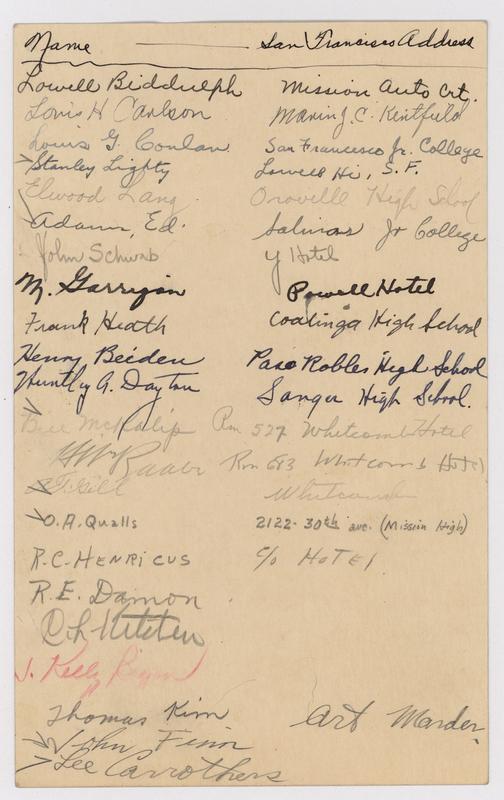 Name San Francisco Address
Lowell Biddulph Mission Auto Crt.
Louis H Carlson Marin J.C. Kentfield
Louis G. Conlan San Francisco Jr. College
Stanley Lighty Lowell Hi, S.F.
Elwood Lang. Oroville High School
Adams, Ed. Salinas Jr College
John Schwab Y Hotel
M. Garrigan Powell Hotel
Frank Heath Coalinga High School
Henry Beiden Paso Robles High School
Huntly G. Dayton Sanger High School.
Bill McKalip Rm 527 Whitcomb Hotel
Raabe Rm 683 Whitcomb Hotel
Gill Whitcomb
O.A. Qualls 2122-30th ave. (Mission High)
R.C. HENRICUS c/o HOTEL
R.E. Damon
J. Kelly
Thomas Kim Art Marder
John Finn
Lee Carrothers